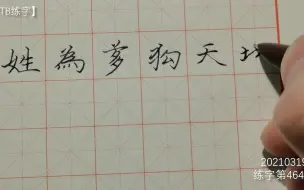 TB练字】
姓為爹狗天
20210319
练字第464